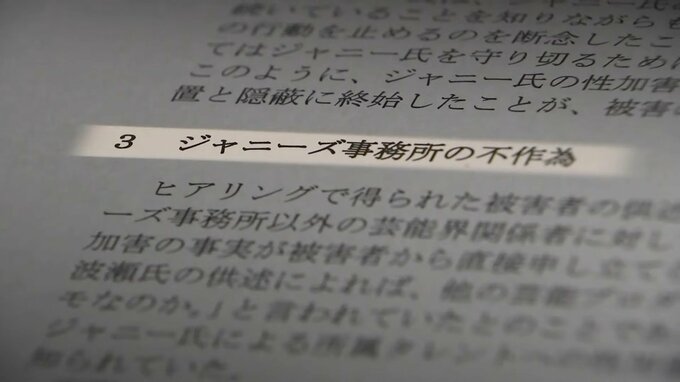 続いていることを知りながらも
の行動を止めるのを断念したこ
てはジャニー氏を守り切るために
このように、ジャニー氏の性加害
置と隠蔽に終始したことが、被害の
3 ジャニーズ事務所の不作為
ヒアリングで得られた被害者の供述
ーズ事務所以外の芸能界関係者に対し
加害の事実が被害者から直接申し立ての
波瀬氏の供述によれば、他の芸能プロダ
モなのか。」と言われていたとのことであ
ジャニー氏による所属タレントへの性加
知られていた。